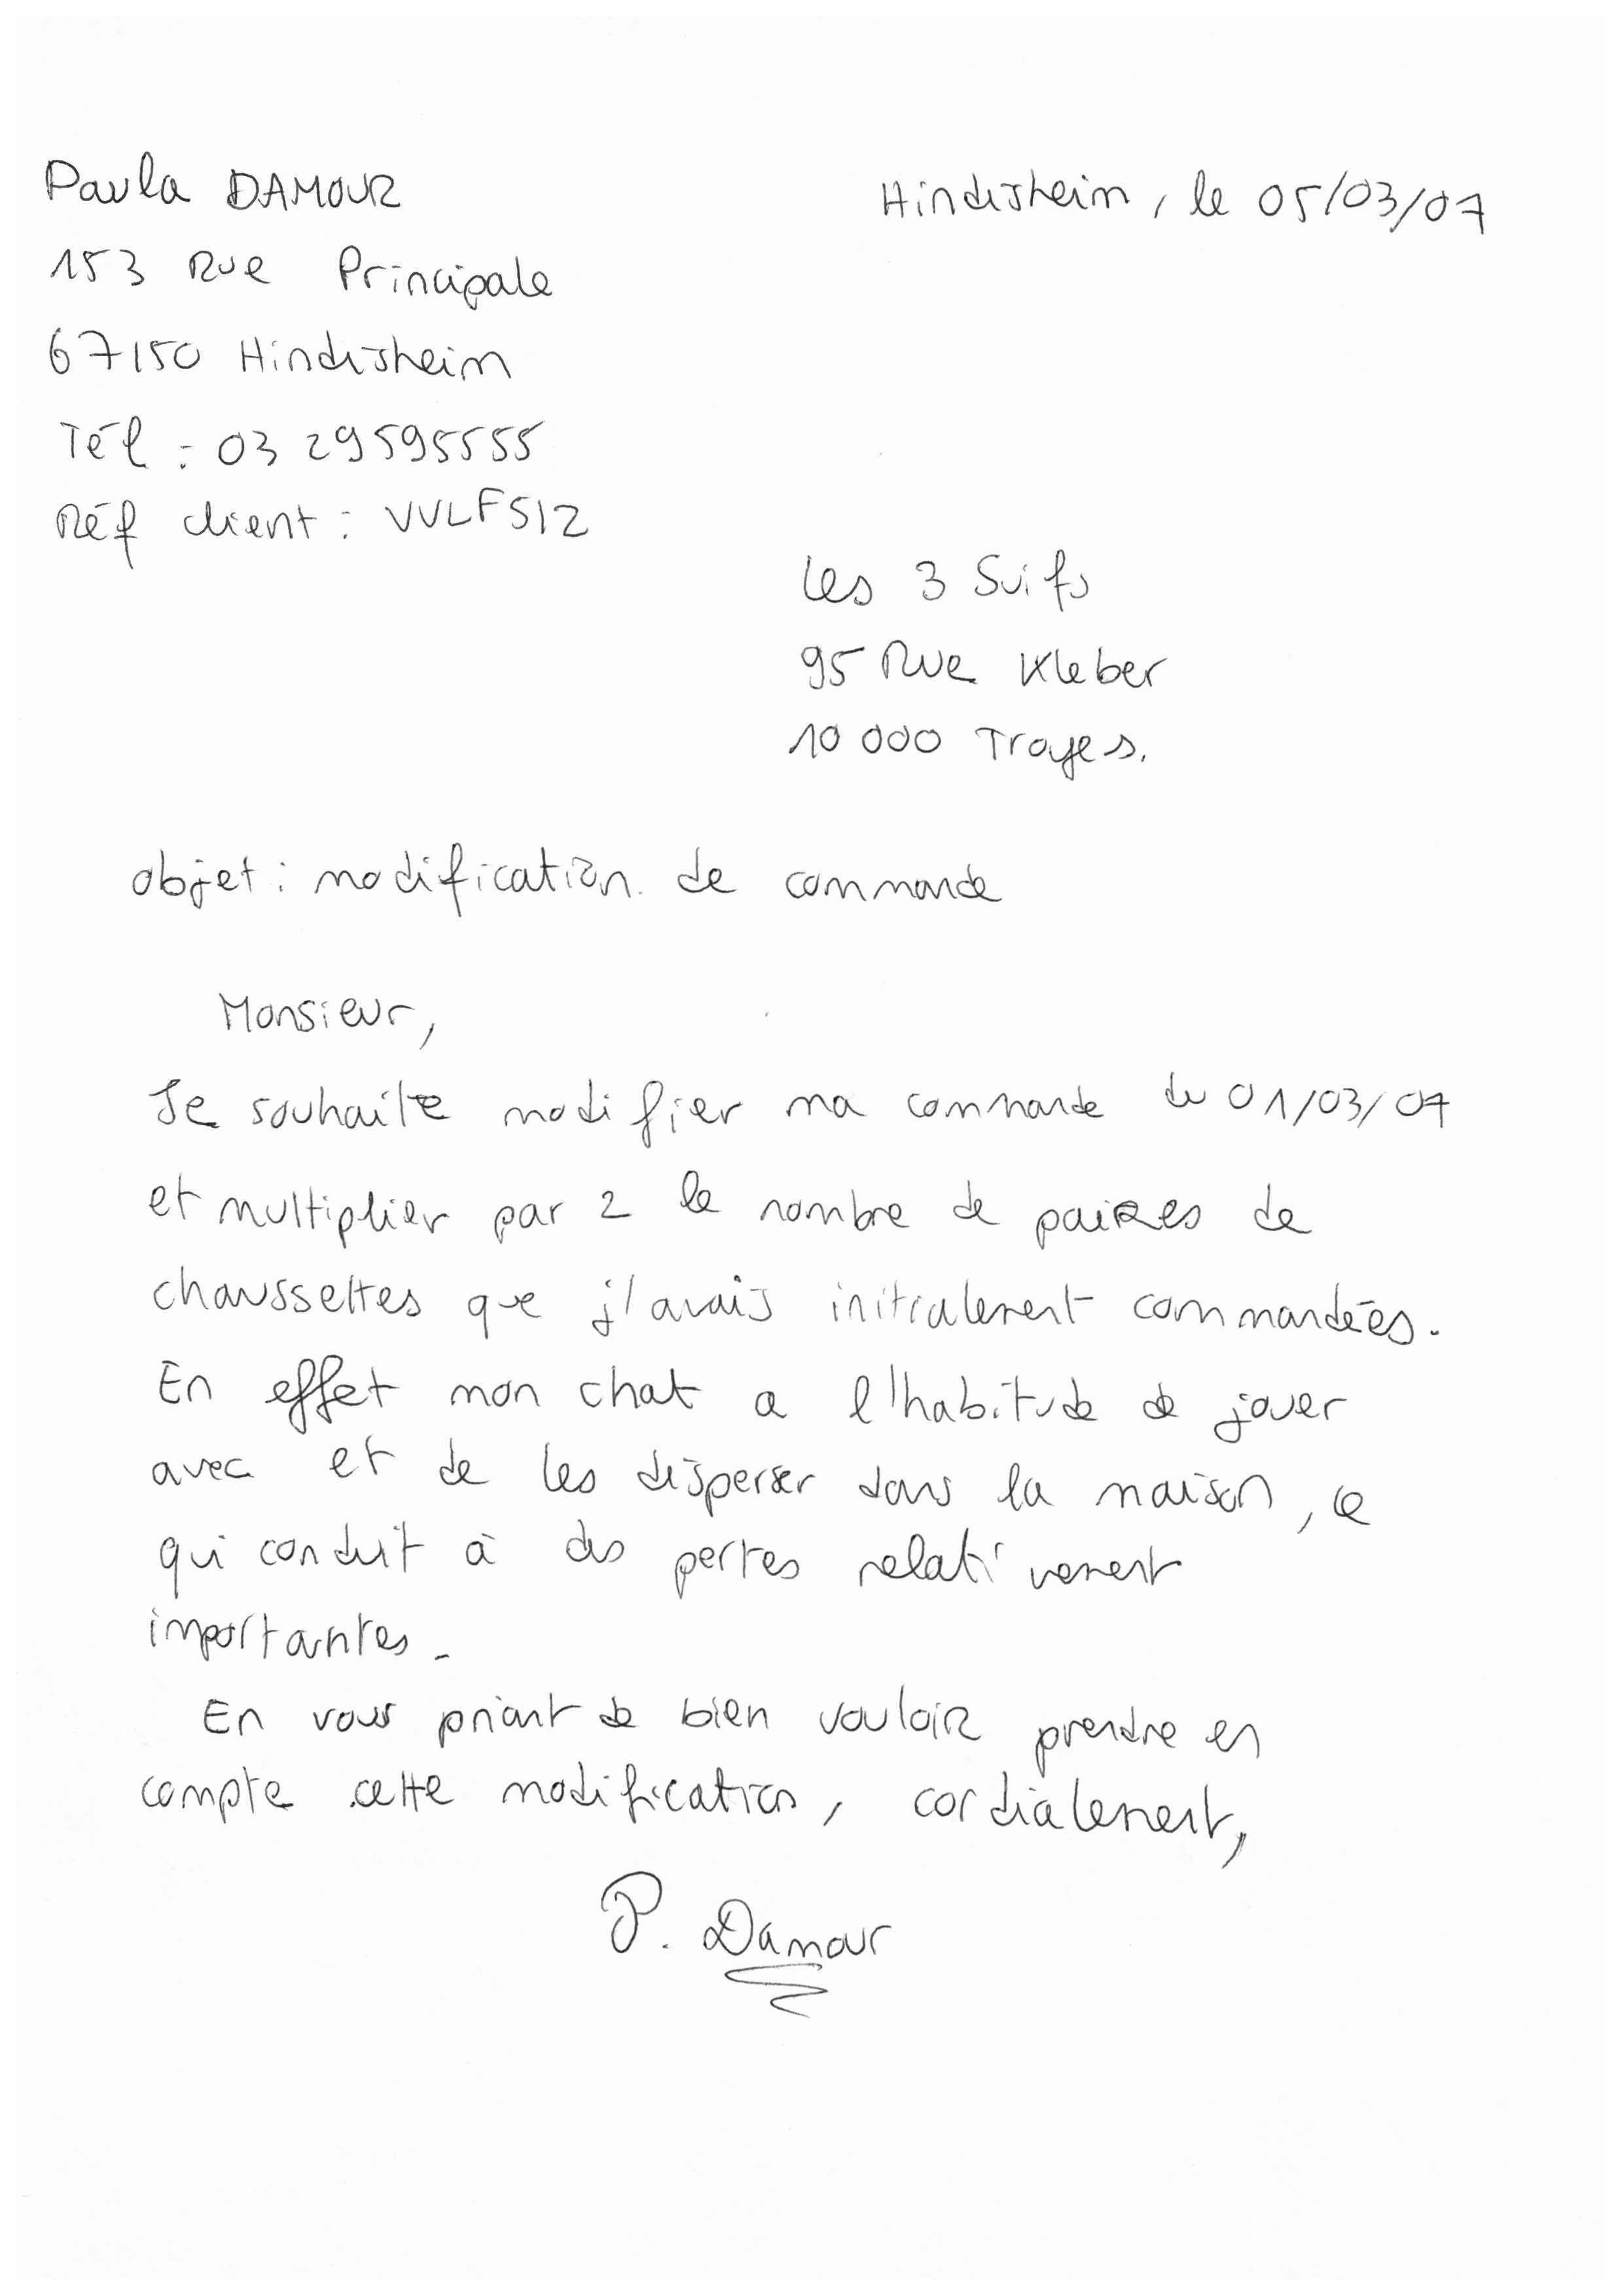 Paula DAMOUR
Hindisheim, le 05/03/07
153 Rue Principale
67150 Hindisheim
Tél : 03 29595555
Réf client : VVLFS12
Les 3 Suifs
95 Rue Kleber
10 000 Troyes.
objet : modification de commande
Monsieur,
Je souhaite modifier ma commande du 01/03/07
et multiplier par 2 le nombre de paires de
chaussettes que j'avais initialement commandées.
En effet mon chat a l'habitude de jouer
avec et de les disperser dans la maison, ce
qui conduit à des pertes relativement
importantes.
En vous priant de bien vouloir prendre en
compte cette modification, cordialement,
P. Damour